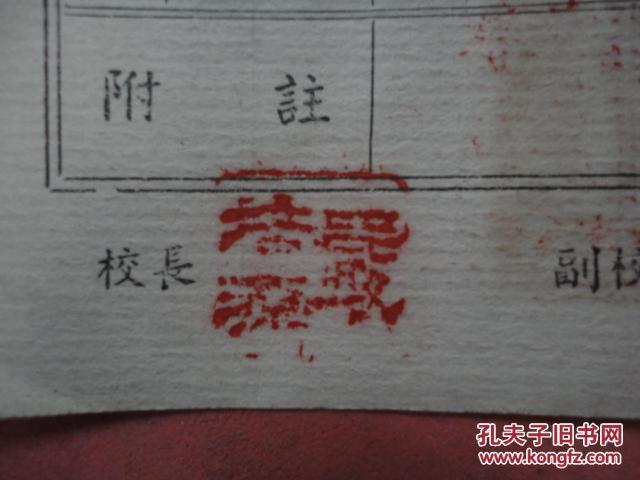 附 註
校長
副校
孔夫子旧书网
www.kongfz.com